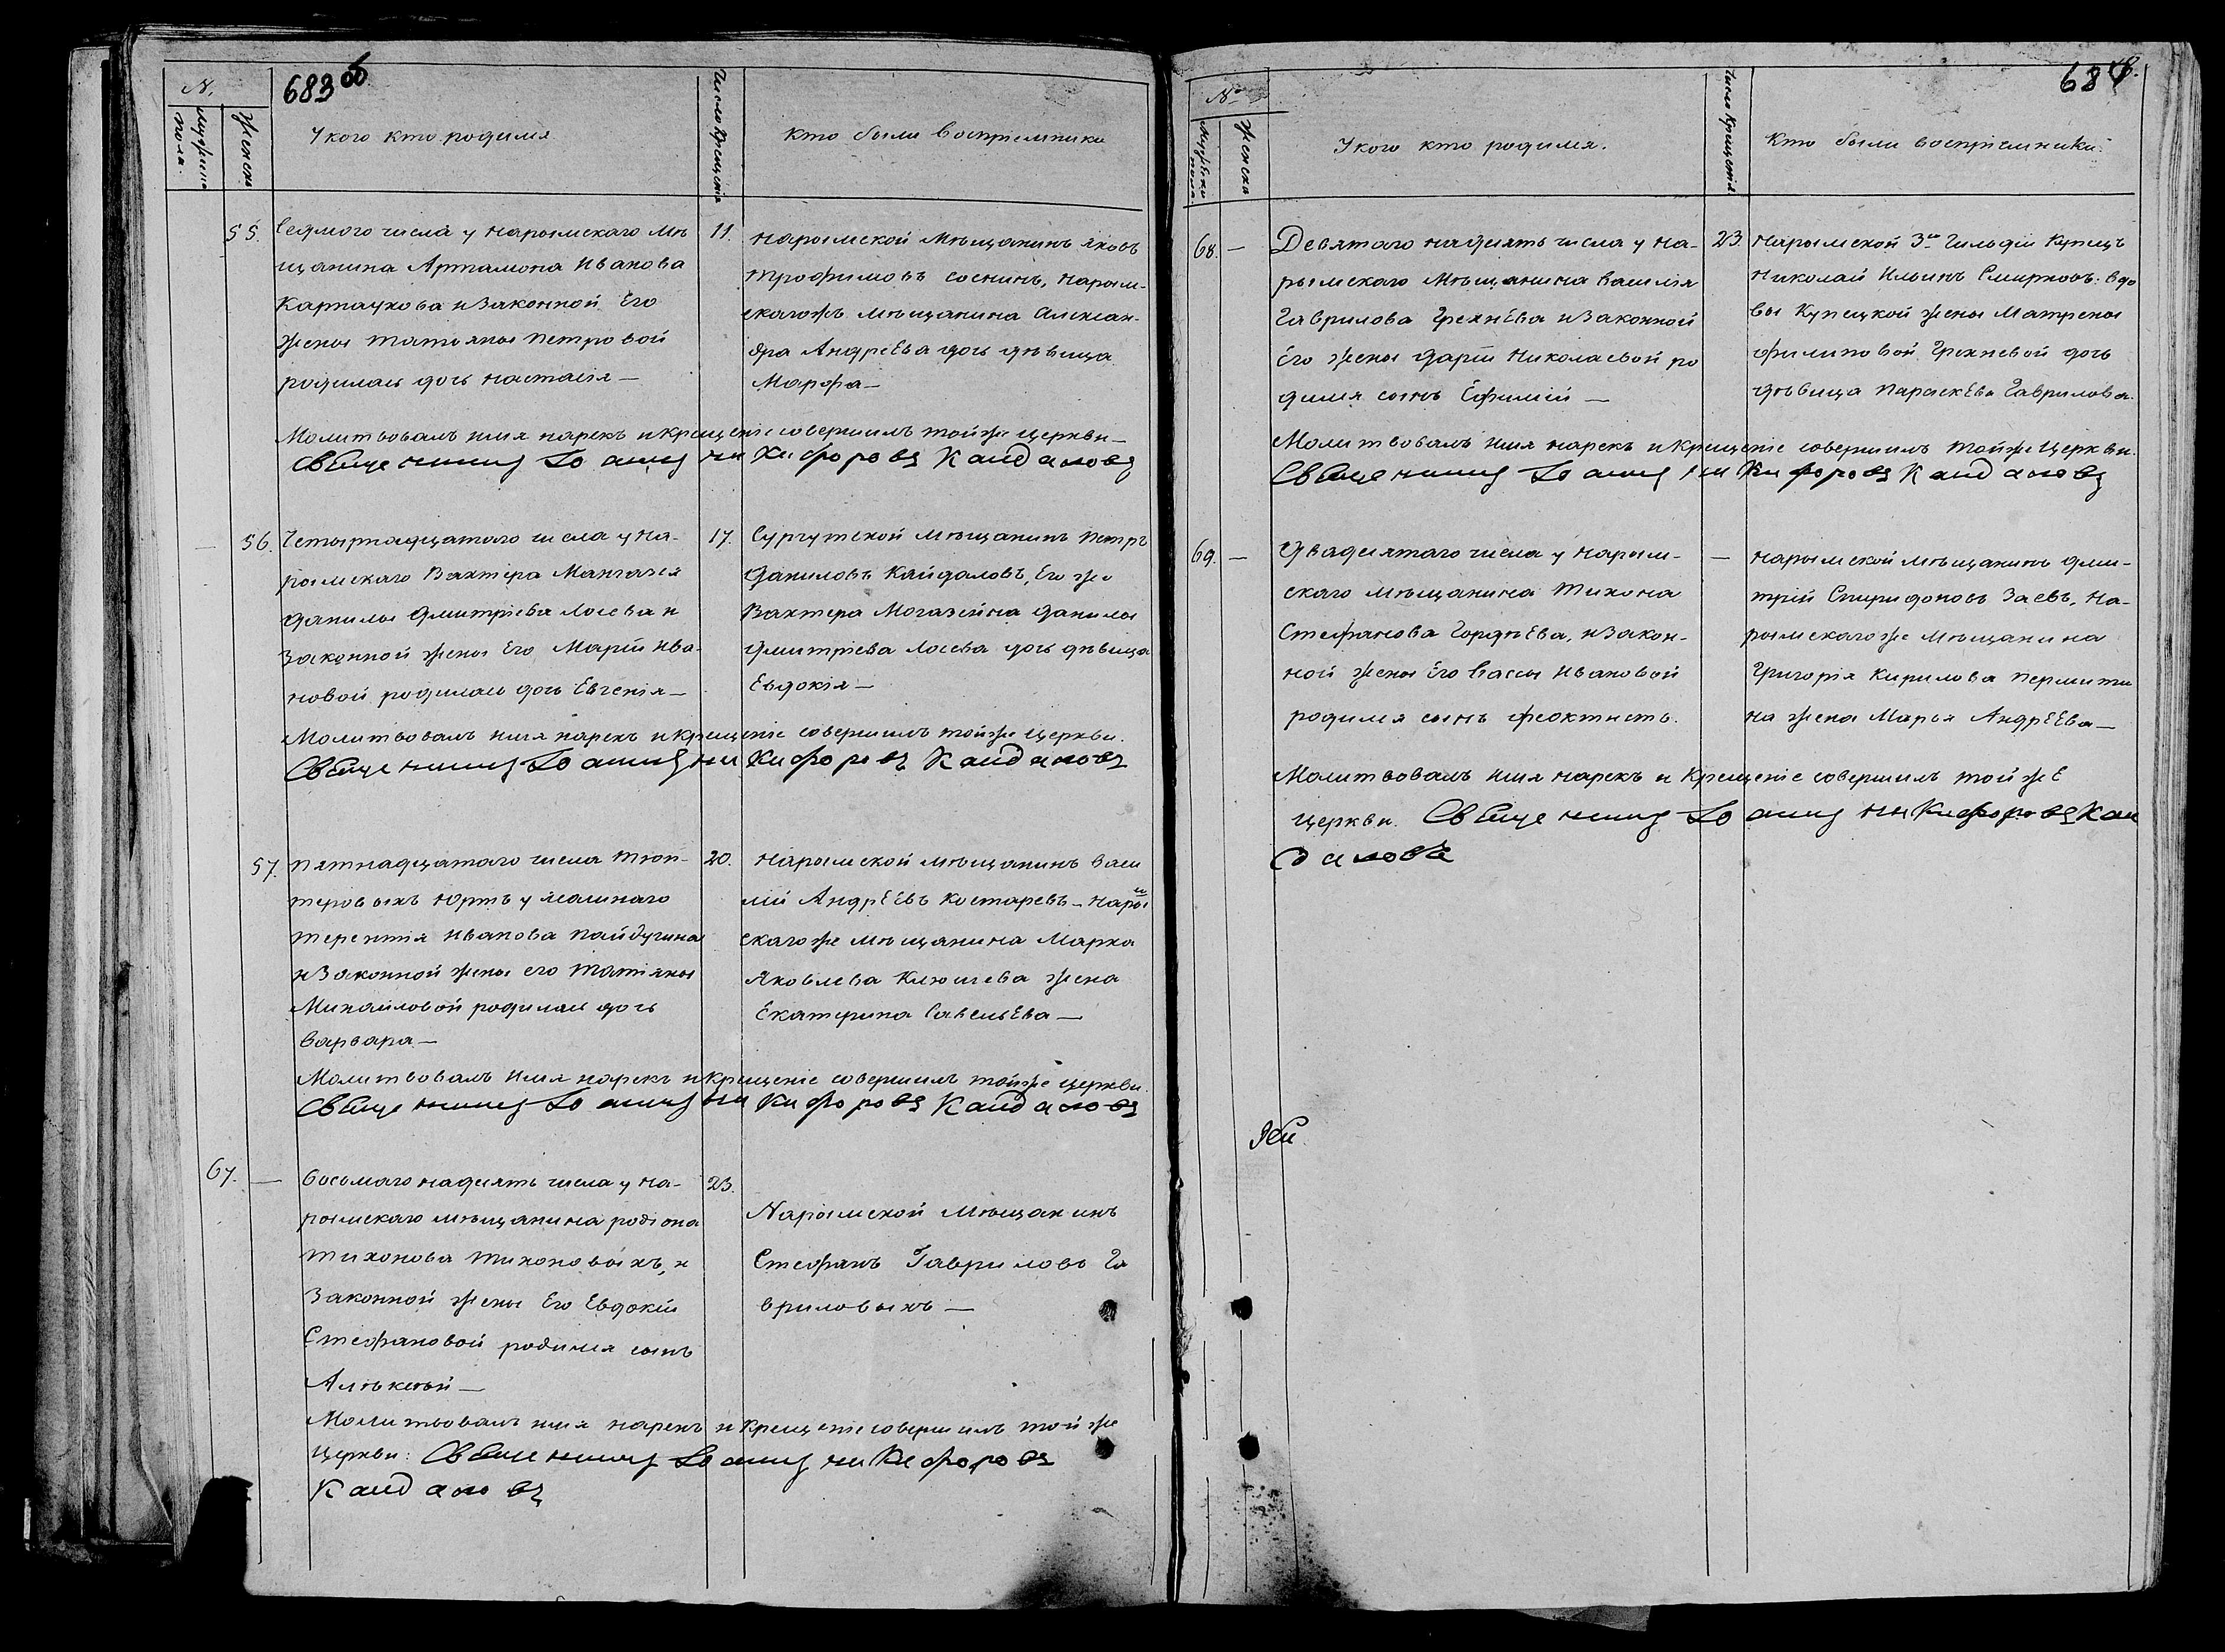 683 об
№
Мужеска
пола.
Женска
У кого кто родился
Число Крещенія
Кто были воспріемники
55.
Седмого числа у нарымскаго мѣ
щанина Артамона Иванова
Карпаухова и законной Его
жены Татьяны Петровой
родилась дочь Настасія —
11.
Нарымской Мѣщанинъ Яковъ
Трофимовъ Соснинъ, нарым-
скагожъ мѣщанина Алексан-
дра Андреева дочь дѣвица
Марфа —
Молитвовалъ имя нарекъ и Крещеніе совершилъ тойже церкви —
Священникъ Іоаннъ Никифоровъ Кайдаловъ
56.
Четырнадцатаго числа у На-
рымскаго Вахтера Мангазея
Данилы Дмитріева Лосева и
законной жены Его Маріи Ива-
новой родилась дочь Евгенія —
17.
Сургутской мѣщанинъ Петръ
Даниловъ Кайдаловъ, Его же
Вахтера Могазейна Данилы
Дмитріева Лосева дочь дѣвица
Евдокія —
Молитвовалъ имя нарекъ и Крещеніе совершилъ тойже Церкви.
Священникъ Іоаннъ Никифоровъ Кайдаловъ
57.
Пятнадцатаго числа Тюп-
теровыхъ Юртъ у ясашнаго
Терентія Иванова Пайдугина
и Законной жены его Татіяны
Михайловой родилась дочь
Варвара —
20.
Нарымской мѣщанинъ Васи
лій Андрѣевъ Костаревъ — Нарым
скагоже мѣщанина Марка
Яковлева Клюшева жена
Екатерина Савельева —
Молитвовалъ Имя нарекъ и Крещеніе совершилъ тойже церкви.
Священникъ Іоаннъ Никифоровъ Кайдаловъ
67.
Восьмаго надесять числа у На-
рымскаго мѣщанина Родіона
Тихонова Тихоновыхъ, и
Законной жены Его Евдокіи
Стефановой родился сынъ
Алѣксѣй —
23.
Нарымской Мѣщанинъ
Стефанъ Гавриловъ Га
вриловыхъ —
Молитвовалъ имя нарекъ и Крещеніе совершилъ той же
Церкви: Священникъ Іоаннъ Никифоровъ
Кайдаловъ
684
№
Мужеска
пола
Женска
У кого кто родился.
Число Крещенія
Кто были воспріемники.
68. —
Девятаго надесять числа у На-
рымскаго Мѣщанина Василія
Гаврилова Грехнѣва и Законной
Его жены Дарьи Николаевой ро
дился сынъ Ефимій —
23.
Нарымской 3й Гильдіи Купецъ
Николай Ильинъ Смирновъ: вдо
вы Купецкой жены Матрены
Филиповой Грехневой дочь
дѣвица Параскева Гаврилова.
Молитвовалъ имя нарекъ и Крещеніе совершилъ тойже Церкви.
Священникъ Іоаннъ Никифоровъ Кайдаловъ
69. —
Двадесятаго числа у Нарым-
скаго мѣщанина Тихона
Стефанова Гордѣева, и Закон-
ной жены Его Вассы Ивановой
родился сынъ Феоктистъ.
—
Нарымской мѣщанинъ Дми-
трій Спиридоновъ Заевъ, На-
рымскагоже Мѣщанина
Григорія Кирилова Пермити
на жена Марья Андрѣева —
Молитвовалъ имя нарекъ и Крещеніе совершилъ той же
церкви. Священникъ Іоаннъ Никифоровъ Кай
даловъ